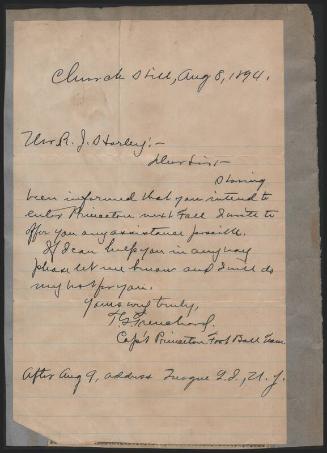 Church Hill, Aug 8, 1894.
Mr R. J.
Dear Sir:-
Having
been informed that you intend to
enter Princeton next Fall I write to
offer you any assistance possible.
If I can help you in any way
please let me know and I will do
my best for you.
Yours very truly,
T G Trenchard,
Capt Princeton Foot Ball Team
After Aug 9, address Quogue L. I., N. Y.